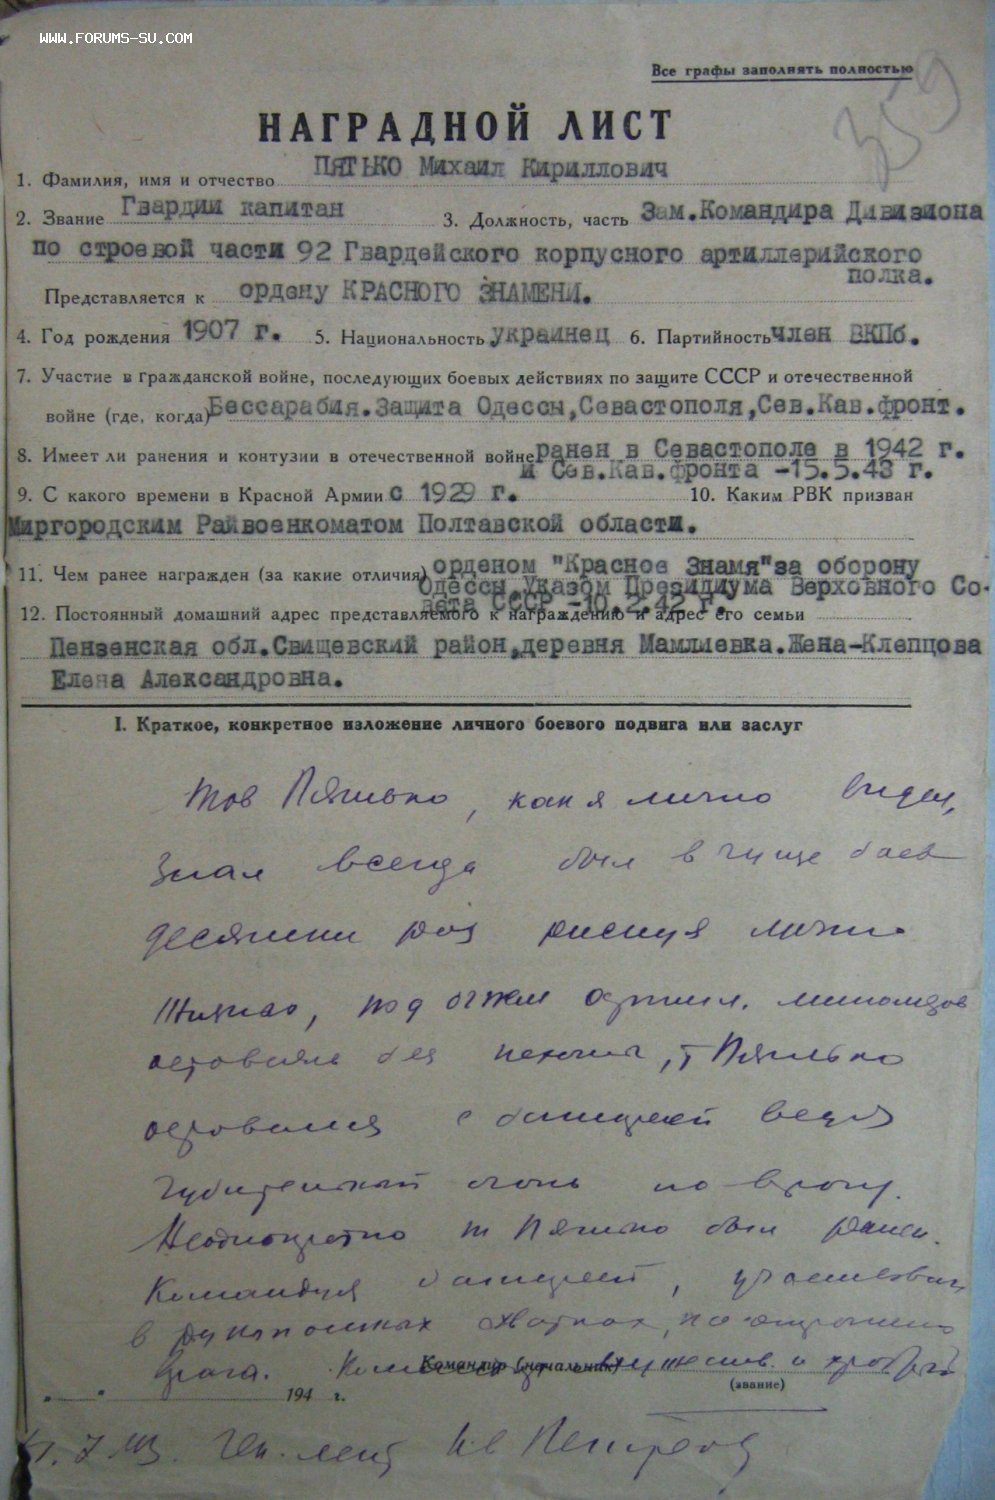 WWW.FORUMS-SU.COM
Все графы заполнять полностью
359
НАГРАДНОЙ ЛИСТ
1. Фамилия, имя и отчество ПЯТЬКО Михаил Кириллович
2. Звание Гвардии капитан 3. Должность, часть Зам.Командира Дивизиона
по строевой части 92 Гвардейского корпусного артиллерийского
полка.
Представляется к ордену КРАСНОГО ЗНАМЕНИ.
4. Год рождения 1907 г. 5. Национальность украинец 6. Партийность член ВКПб.
7. Участие в гражданской войне, последующих боевых действиях по защите СССР и отечественной
войне (где, когда) Бессарабия.Защита Одессы,Севастополя,Сев.Кав.фронт.
8. Имеет ли ранения и контузии в отечественной войне ранен в Севастополе в 1942 г.
и Сев.Кав.фронта -15.5.43 г.
9. С какого времени в Красной Армии с 1929 г. 10. Каким РВК призван
Миргородским Райвоенкоматом Полтавской области.
11. Чем ранее награжден (за какие отличия) орденом "Красное Знамя" за оборону
Одессы.Указом Президиума Верховного Со-
вета СССР -10.2.42 г.
12. Постоянный домашний адрес представляемого к награждению и адрес его семьи
Пензенская обл.Свищевский район,деревня Мамлиевка.Жена-Клепцова
Елена Александровна.
I. Краткое, конкретное изложение личного боевого подвига или заслуг
Тов Пятько, как я лично видел,
знал всегда был в гуще боев
десятки раз рискуя лично
жизнью, под огнем артил. минометов
оставаясь без пехоты, т Пятько
оставался с батареей ведя
губительный огонь по врагу.
Неоднократно т Пятько был ранен.
Командуя батареей, участвовал
в рукопашных схватках,
врага. и храбрый
Командир (начальник)
(звание)
194 г.
7.43. Ген. лейт Ив Петров